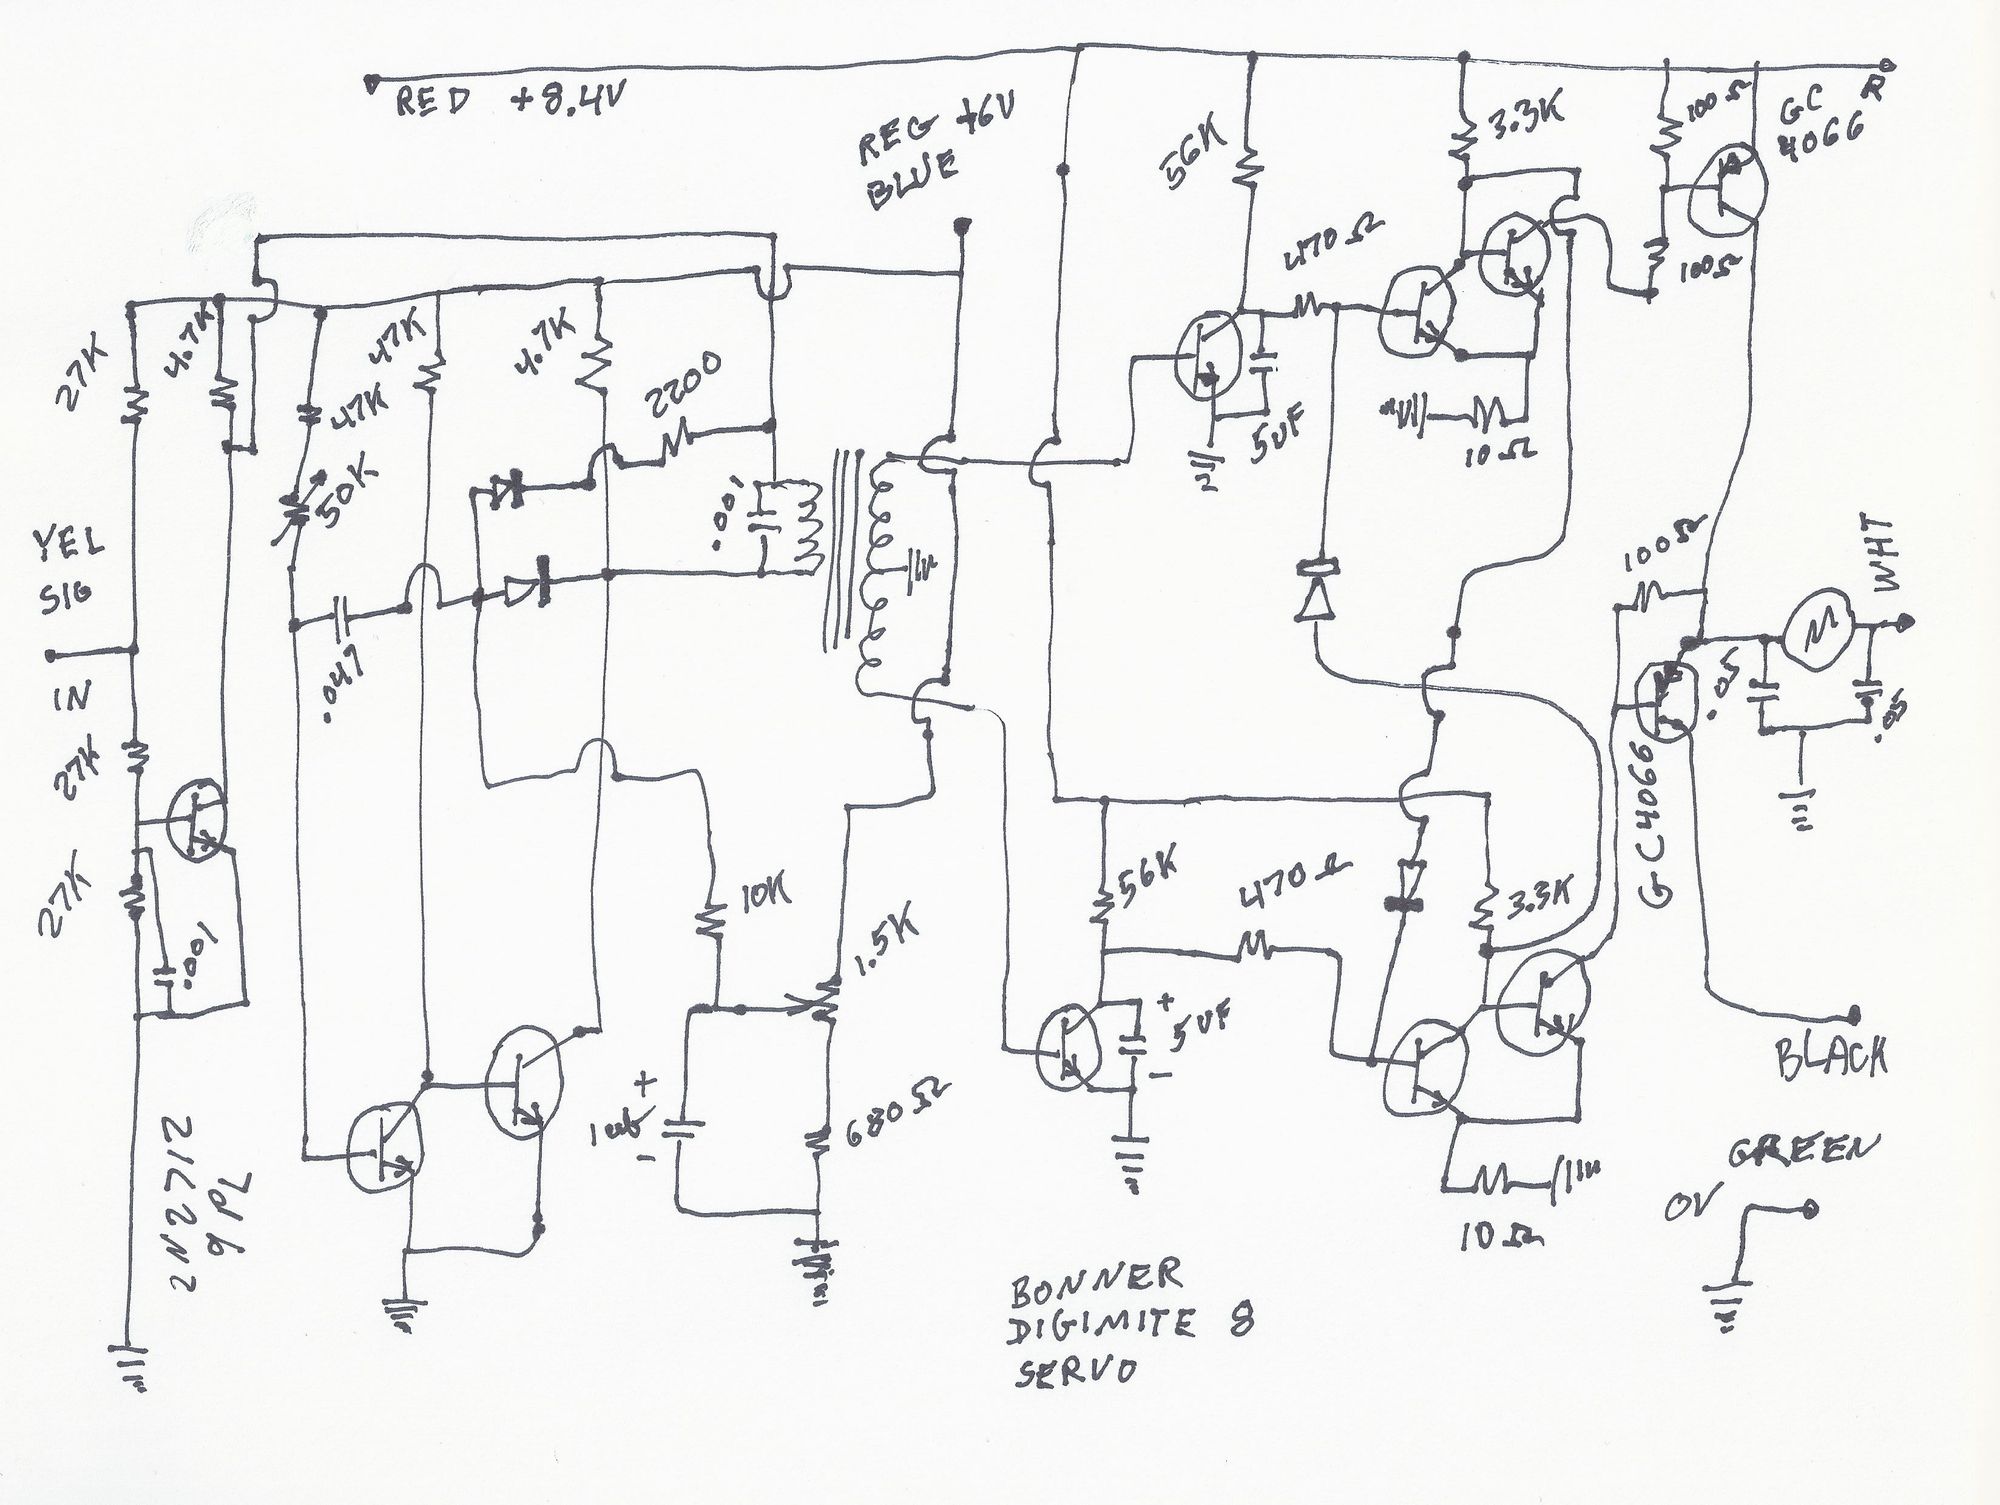 RED +8.4V
R
REG +6V
BLUE
56K
3.3K
100Ω
GC
4066
470Ω
100Ω
27K
4.7K
47K
47K
4.7K
2200
50K
5UF
10Ω
.001
YEL
SIG
IN
.047
100Ω
WHT
.05
.05
GC4066
27K
27K
.001
10K
1.5K
56K
470Ω
3.3K
+
5UF
-
BLACK
2N2712
9 PL
+
-
680Ω
10Ω
GREEN
0V
BONNER
DIGIMITE 8
SERVO